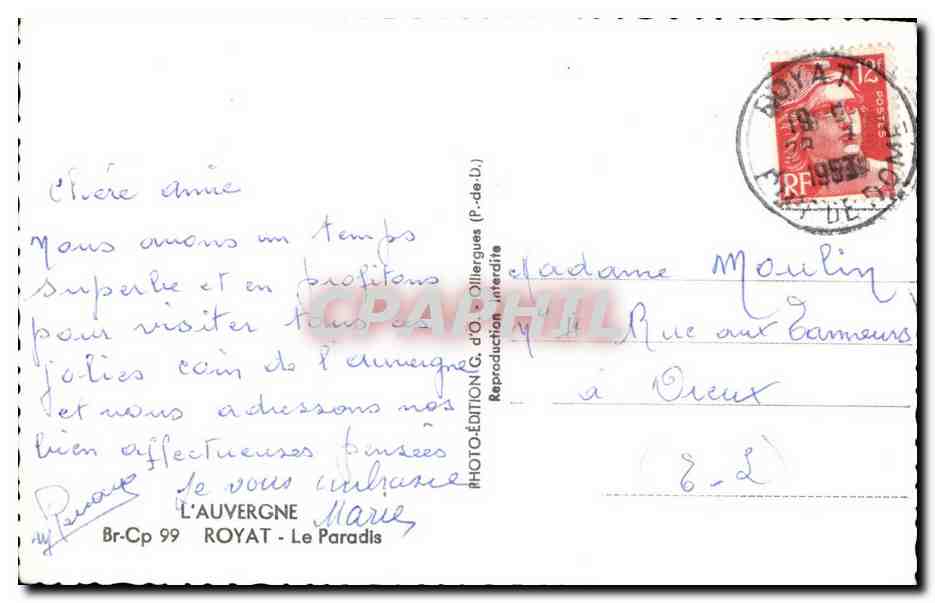 Chère amie
Nous avons un temps
superbe et en profitons
pour visiter tous ces
jolies coin de l'auvergne
et nous adressons nos
bien affectueuses pensées
Je vous embrasse
Marie
L'AUVERGNE
Br-Cp 99 ROYAT - Le Paradis
PHOTO-ÉDITION G. d'O. - Olliergues (P.-de-D.)
Reproduction Interdite
CPAPHIL
12F
POSTES
RF
ROYAT
PUY DE DOME
Madame Moulin
Rue aux Tanneurs
à Dreux
(E-L)